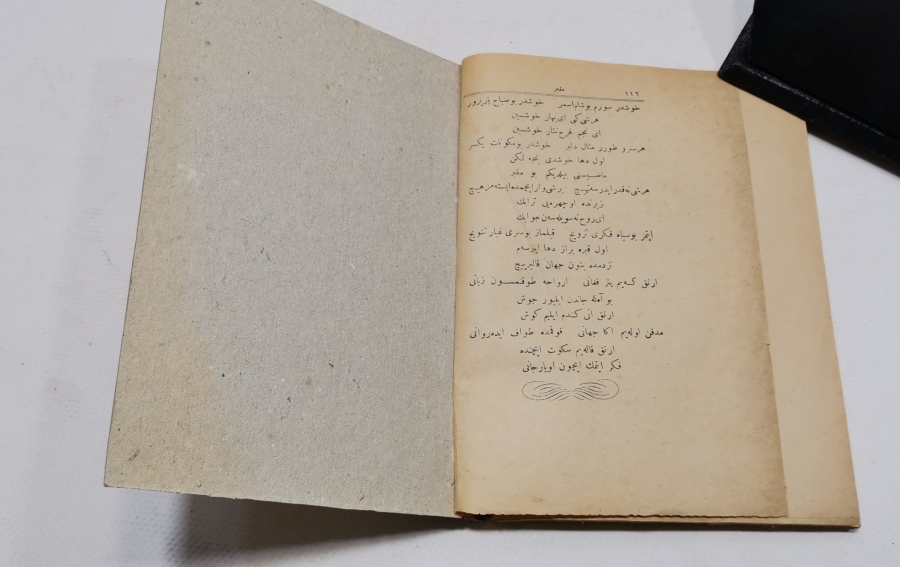 ١١٦
مقبر
خوشدر سورم بوشامی اسمر خوشدر بو صباح یارپرور
هر شی کی ای بهار خوشسین
ای نجم فرح نثار خوشسین
هر سرو طورر مثال دلبر خوشدر بو سکونت یکسر
اول دها خوشدی بنجه لکن
ماضیسنی بیلدیکم بو مقبر
هر شی نه قدر ایدرسه تهییج بر شی وار ایچمده ایسته مز هیچ
زیرنده او چهره یی ترابك
ای روح نه سویله سه ن جوابك
ایتمز بو سیاه فکری ترویج قیلماز بو سری غبار تتویج
اول قبره براز دها ایرسه م
نزدمده بتون جهان قالیر پیچ
ارتق کسه یم یتر فغانی ارواحه طوقنمسون زبانی
بو آهله جاندن ایلیور جوش
ارتق انی کندم ایلیم گوش
مدفن اوله یم اکا جهانی فوقمده طواف ایده روانی
ارتق قاله یم سکوت ایچنده
فکر ایتمك ایچون او یار جانی